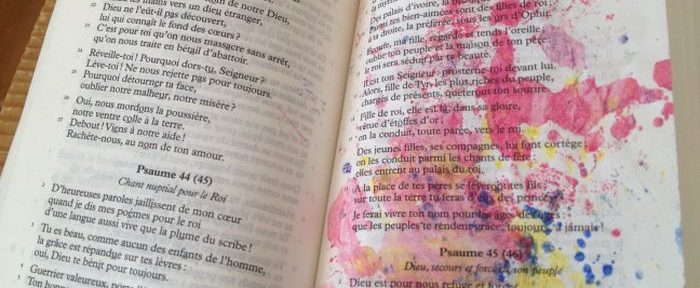 les mains vers un dieu étranger,
22 Dieu ne l'eût-il pas découvert,
lui qui connaît le fond des cœurs ?
23 C'est pour toi qu'on nous massacre sans arrêt,
qu'on nous traite en bétail d'abattoir.
24 Réveille-toi ! Pourquoi dors-tu, Seigneur ?
Lève-toi ! Ne nous rejette pas pour toujours.
25 Pourquoi détourner ta face,
oublier notre malheur, notre misère ?
26 Oui, nous mordons la poussière,
notre ventre colle à la terre.
27 Debout ! Viens à notre aide !
Rachète-nous, au nom de ton amour.
Psaume 44 (45)
Chant nuptial pour le Roi
D'heureuses paroles jaillissent de mon cœur
quand je dis mes poèmes pour le roi
d'une langue aussi vive que la plume du scribe !
Tu es beau, comme aucun des enfants de l'homme,
la grâce est répandue sur tes lèvres :
oui, Dieu te bénit pour toujours.
Guerrier valeureux, porte
Ton honneur
Des palais d'ivoire, la musique
Parmi tes bien-aimées sont des filles de roi ;
à ta droite, la préférée, sous les ors d'Ophir.
Écoute, ma fille, regarde et tends l'oreille ;
oublie ton peuple et la maison de ton père :
le roi sera séduit par ta beauté.
Il est ton Seigneur : prosterne-toi devant lui.
Alors, fille de Tyr, les plus riches du peuple,
chargés de présents, quêteront ton sourire.
Fille de roi, elle est là, dans sa gloire,
vêtue d'étoffes d'or ;
on la conduit, toute parée, vers le roi.
Des jeunes filles, ses compagnes, lui font cortège ;
on les conduit parmi les chants de fête :
elles entrent au palais du roi.
À la place de tes pères se lèveront tes fils ;
sur toute la terre tu feras d'eux des princes.
Je ferai vivre ton nom pour les âges des âges :
que les peuples te rendent grâce, toujours, à jamais !
Psaume 45 (46)
Dieu, secours et force de son peuple
Dieu est pour nous refuge et force